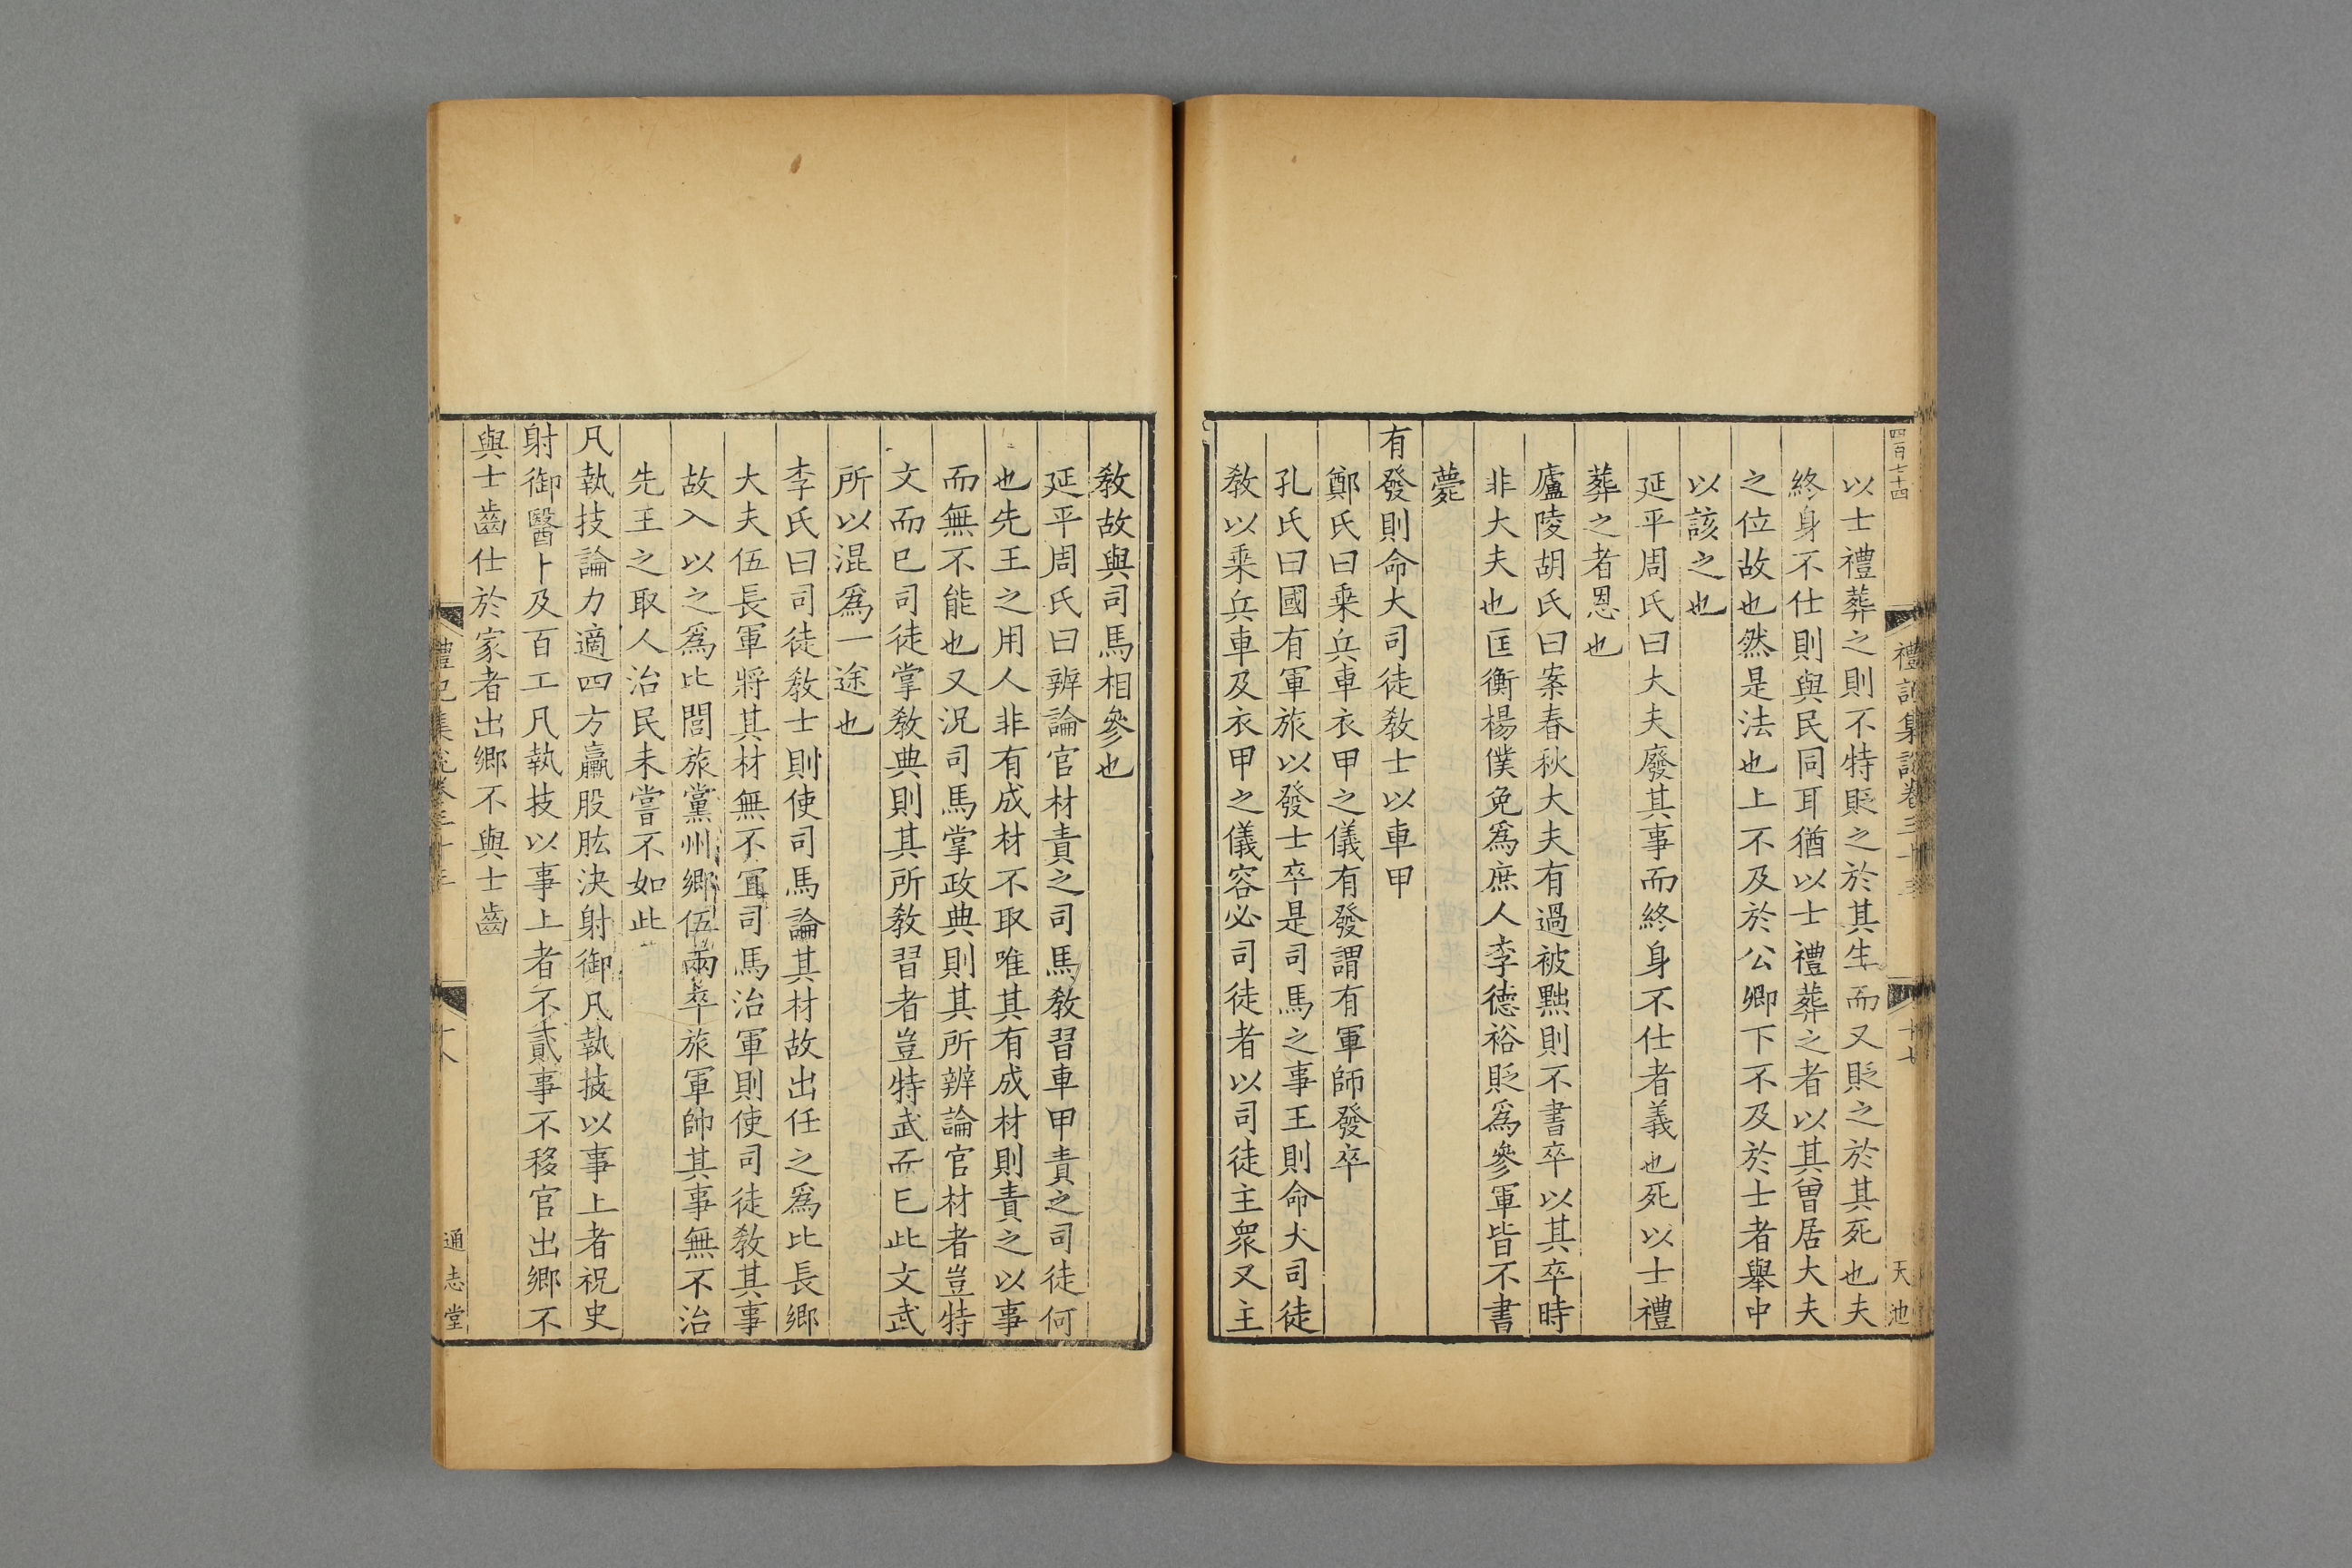 四百七十四
禮記集說卷三十
十七
天池
以士禮葬之則不特貶之於其生而又貶之於其死也夫
終身不仕則與民同耳猶以士禮葬之者以其曾居大夫
之位故也然是法也上不及於公卿下不及於士者舉中
以該之也
延平周氏曰大夫廢其事而終身不仕者義也死以士禮
葬之者恩也
廬陵胡氏曰案春秋大夫有過被黜則不書卒以其卒時
非大夫也匡衡楊僕免爲庶人李德裕貶爲參軍皆不書
薨
有發則命大司徒敎士以車甲
鄭氏曰乗兵車衣甲之儀有發謂有軍師發卒
孔氏曰國有軍旅以發士卒是司馬之事王則命大司徒
敎以乗兵車及衣甲之儀容必司徒者以司徒主衆又主
敎故與司馬相參也
延平周氏曰辨論官材責之司馬敎習車甲責之司徒何
也先王之用人非有成材不取唯其有成材則責之以事
而無不能也又況司馬掌政典則其所辨論官材者豈特
文而已司徒掌敎典則其所敎習者豈特武而已此文武
所以混爲一途也
李氏曰司徒敎士則使司馬論其材故出任之爲比長鄉
大夫伍長軍將其材無不宜司馬治軍則使司徒敎其事
故入以之爲比閭旅黨州鄉伍兩卒旅軍帥其事無不治
先王之取人治民未嘗不如此
凡執技論力適四方贏股肱決射御凡執技以事上者祝史
射御醫卜及百工凡執技以事上者不貳事不移官出鄉不
與士齒仕於家者出鄉不與士齒
禮記集說卷三十
十八
通志堂